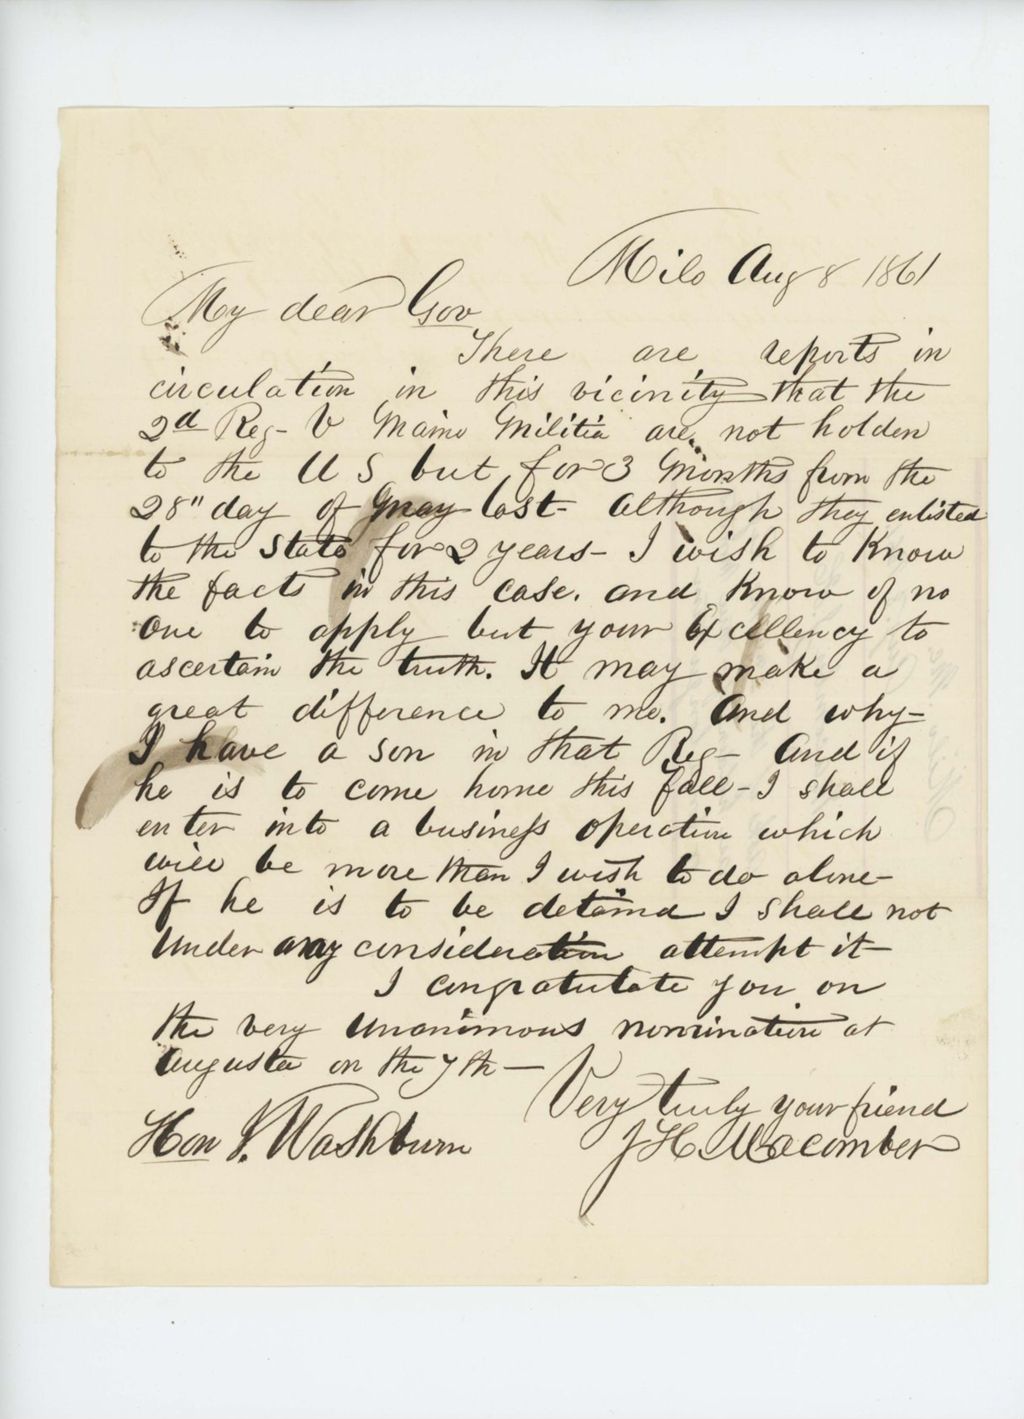 Milo Aug 8 1861
My dear Gov
There are reports in
circulation in this vicinity that the
2d Reg- V Maine Militia are, not holden
to the U S but for 3 Months from the
28" day of May last- Although they enlisted
to the State for 2 years- I wish to Know
the facts in this case. and Know of no
one to apply but your Excellency to
ascertain the truth. It may make a
great difference to me. And why-
I have a son in that Reg- And if
he is to come home this fall- I shall
enter into a business operation which
will be more than I wish to do alone-
If he is to be detaind I shall not
Under any consideration attempt it-
I congratulate you on
the very unanimous nomination at
Augusta on the 7th-
Very truly your friend
Hon I. Washburn
J H Macomber